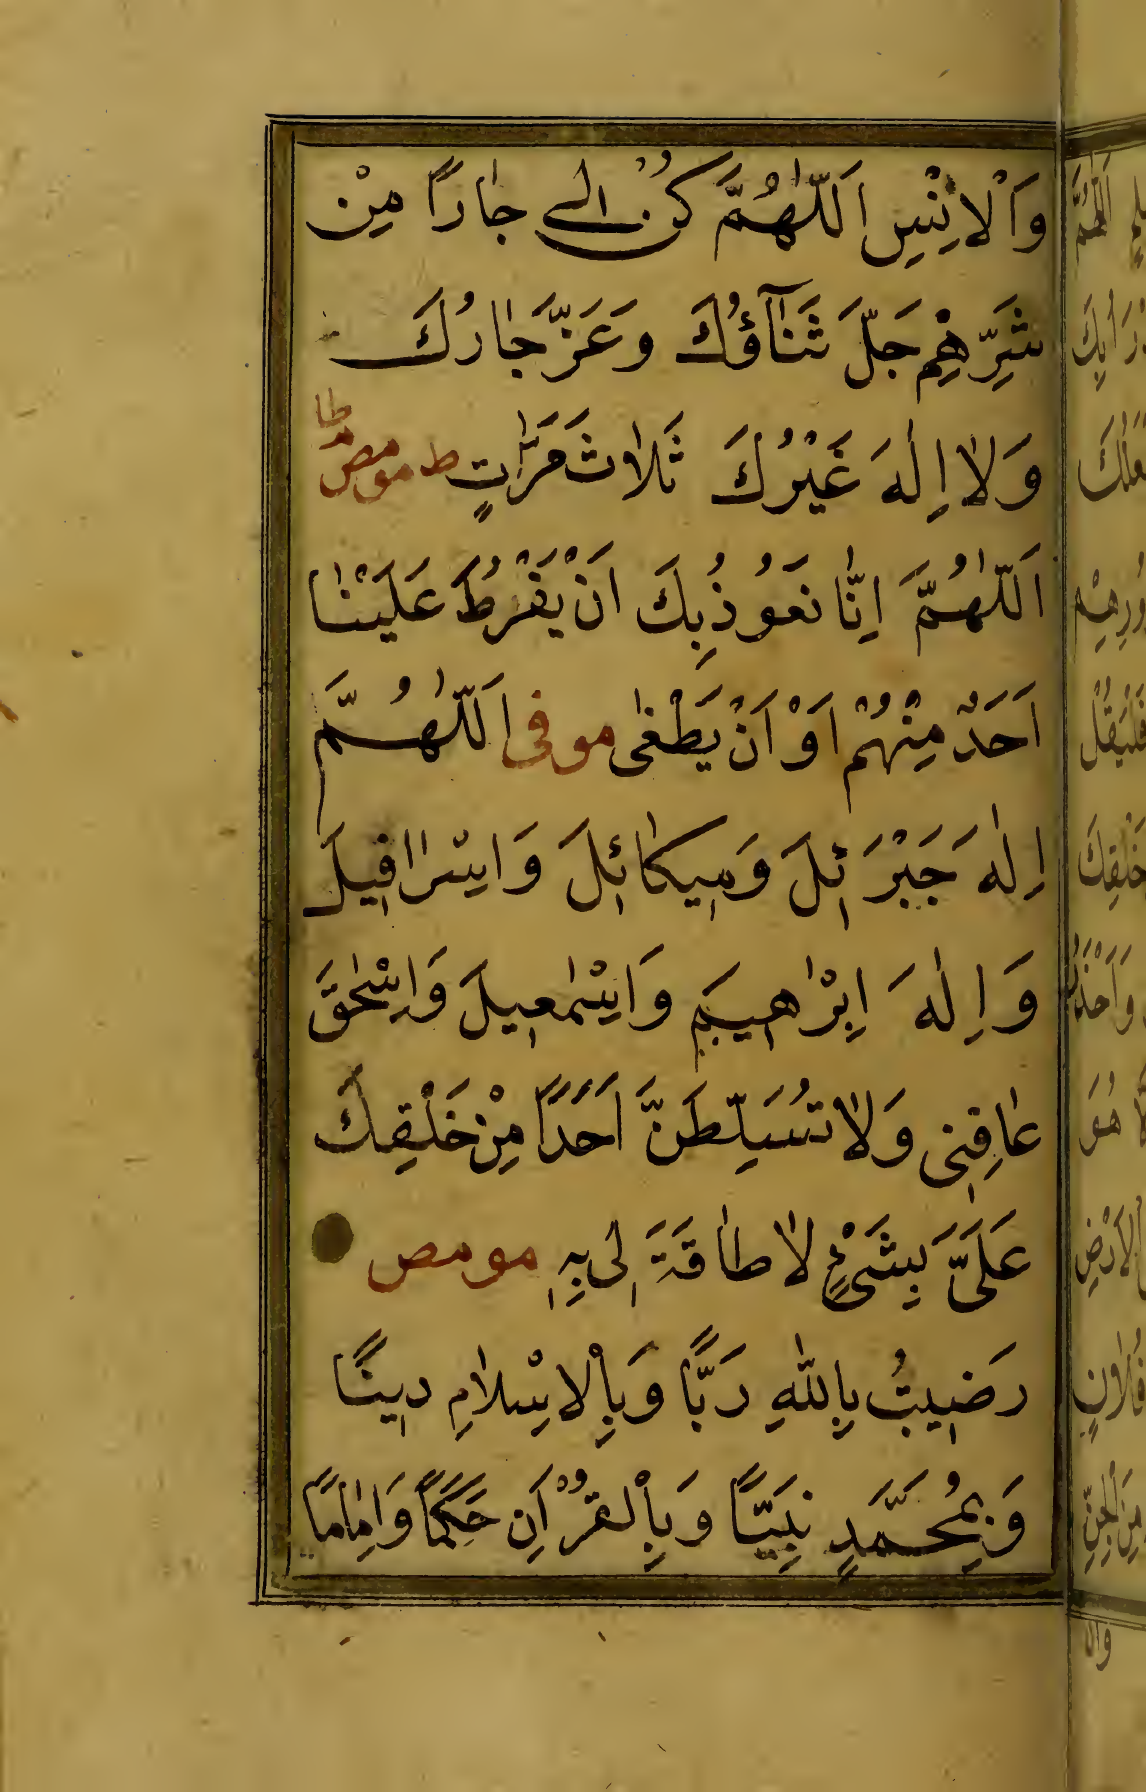 وَالْاِنْسِ اَللّٰهُمَّ كُنْ لِي جَارًا مِنْ
شَرِّهِمْ جَلَّ ثَنَآؤُكَ وَعَزَّ جَارُكَ
وَلَا اِلٰهَ غَيْرُكَ ثَلَاثَ مَرَّاتٍ ط مو مص طا
اَللّٰهُمَّ اِنَّا نَعُوذُ بِكَ اَنْ يَفْرُطَ عَلَيْنَا
اَحَدٌ مِنْهُمْ اَوْ اَنْ يَطْغٰى مو فى اَللّٰهُمَّ
اِلٰهَ جَبْرَائِلَ وَمِيكَائِلَ وَاِسْرَافِيلَ
وَاِلٰهَ اِبْرَاهِيمَ وَاِسْمٰعِيلَ وَاِسْحٰقَ
عَافِنِى وَلَا تُسَلِّطَنَّ اَحَدًا مِنْ خَلْقِكَ
عَلَىَّ بِشَىْءٍ لَا طَاقَةَ لِى بِهِ مو مص
رَضِيتُ بِاللّٰهِ رَبًّا وَبِالْاِسْلَامِ دِينًا
وَبِمُحَمَّدٍ نَبِيًّا وَبِالْقُرْاٰنِ حَكَمًا وَاِمَامًا